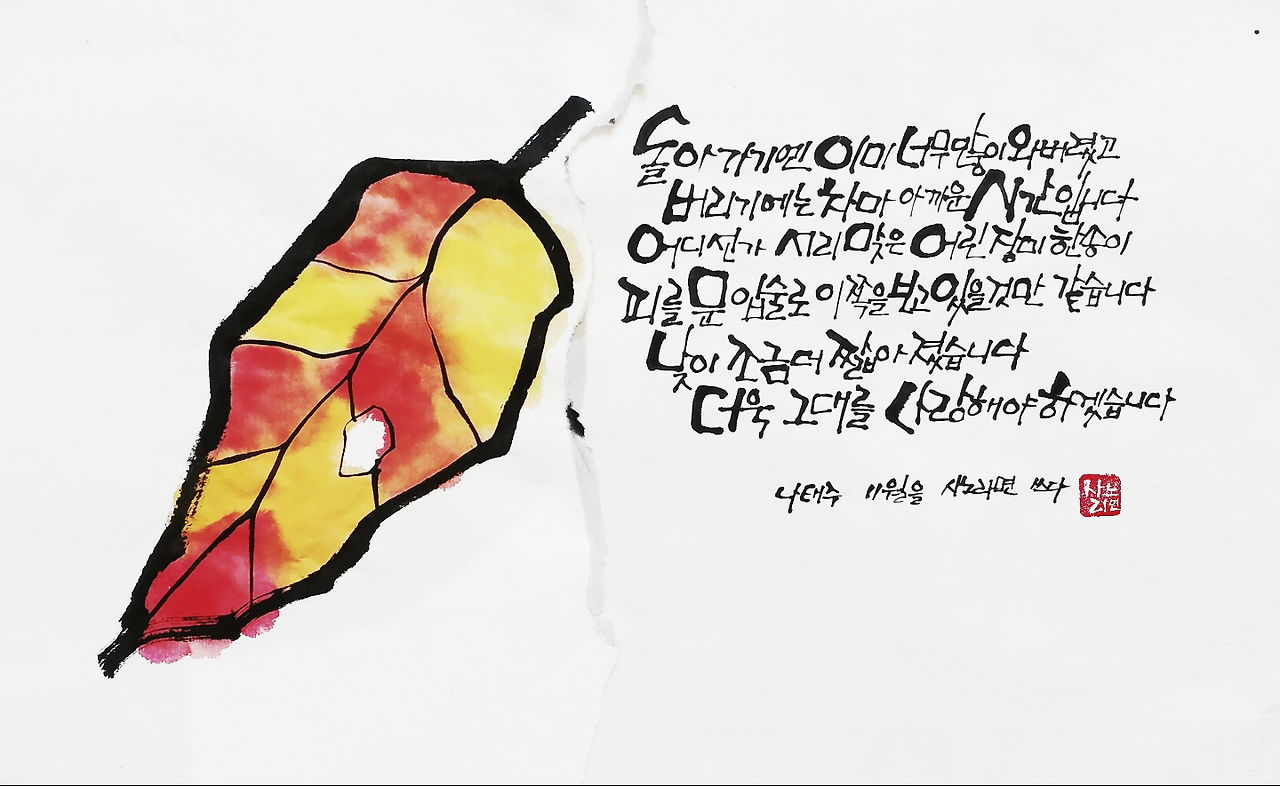 돌아가기엔 이미 너무 많이 와버렸고
버리기에는 차마 아까운 시간입니다
어디선가 서리 맞은 어린 장미 한 송이
피를 문 입술로 이쪽을 보고 있을 것만 같습니다
낮이 조금 더 짧아졌습니다
더욱 그대를 사랑해야 하겠습니다
나태주 11월을 샤노라면 쓰다
샤노라면